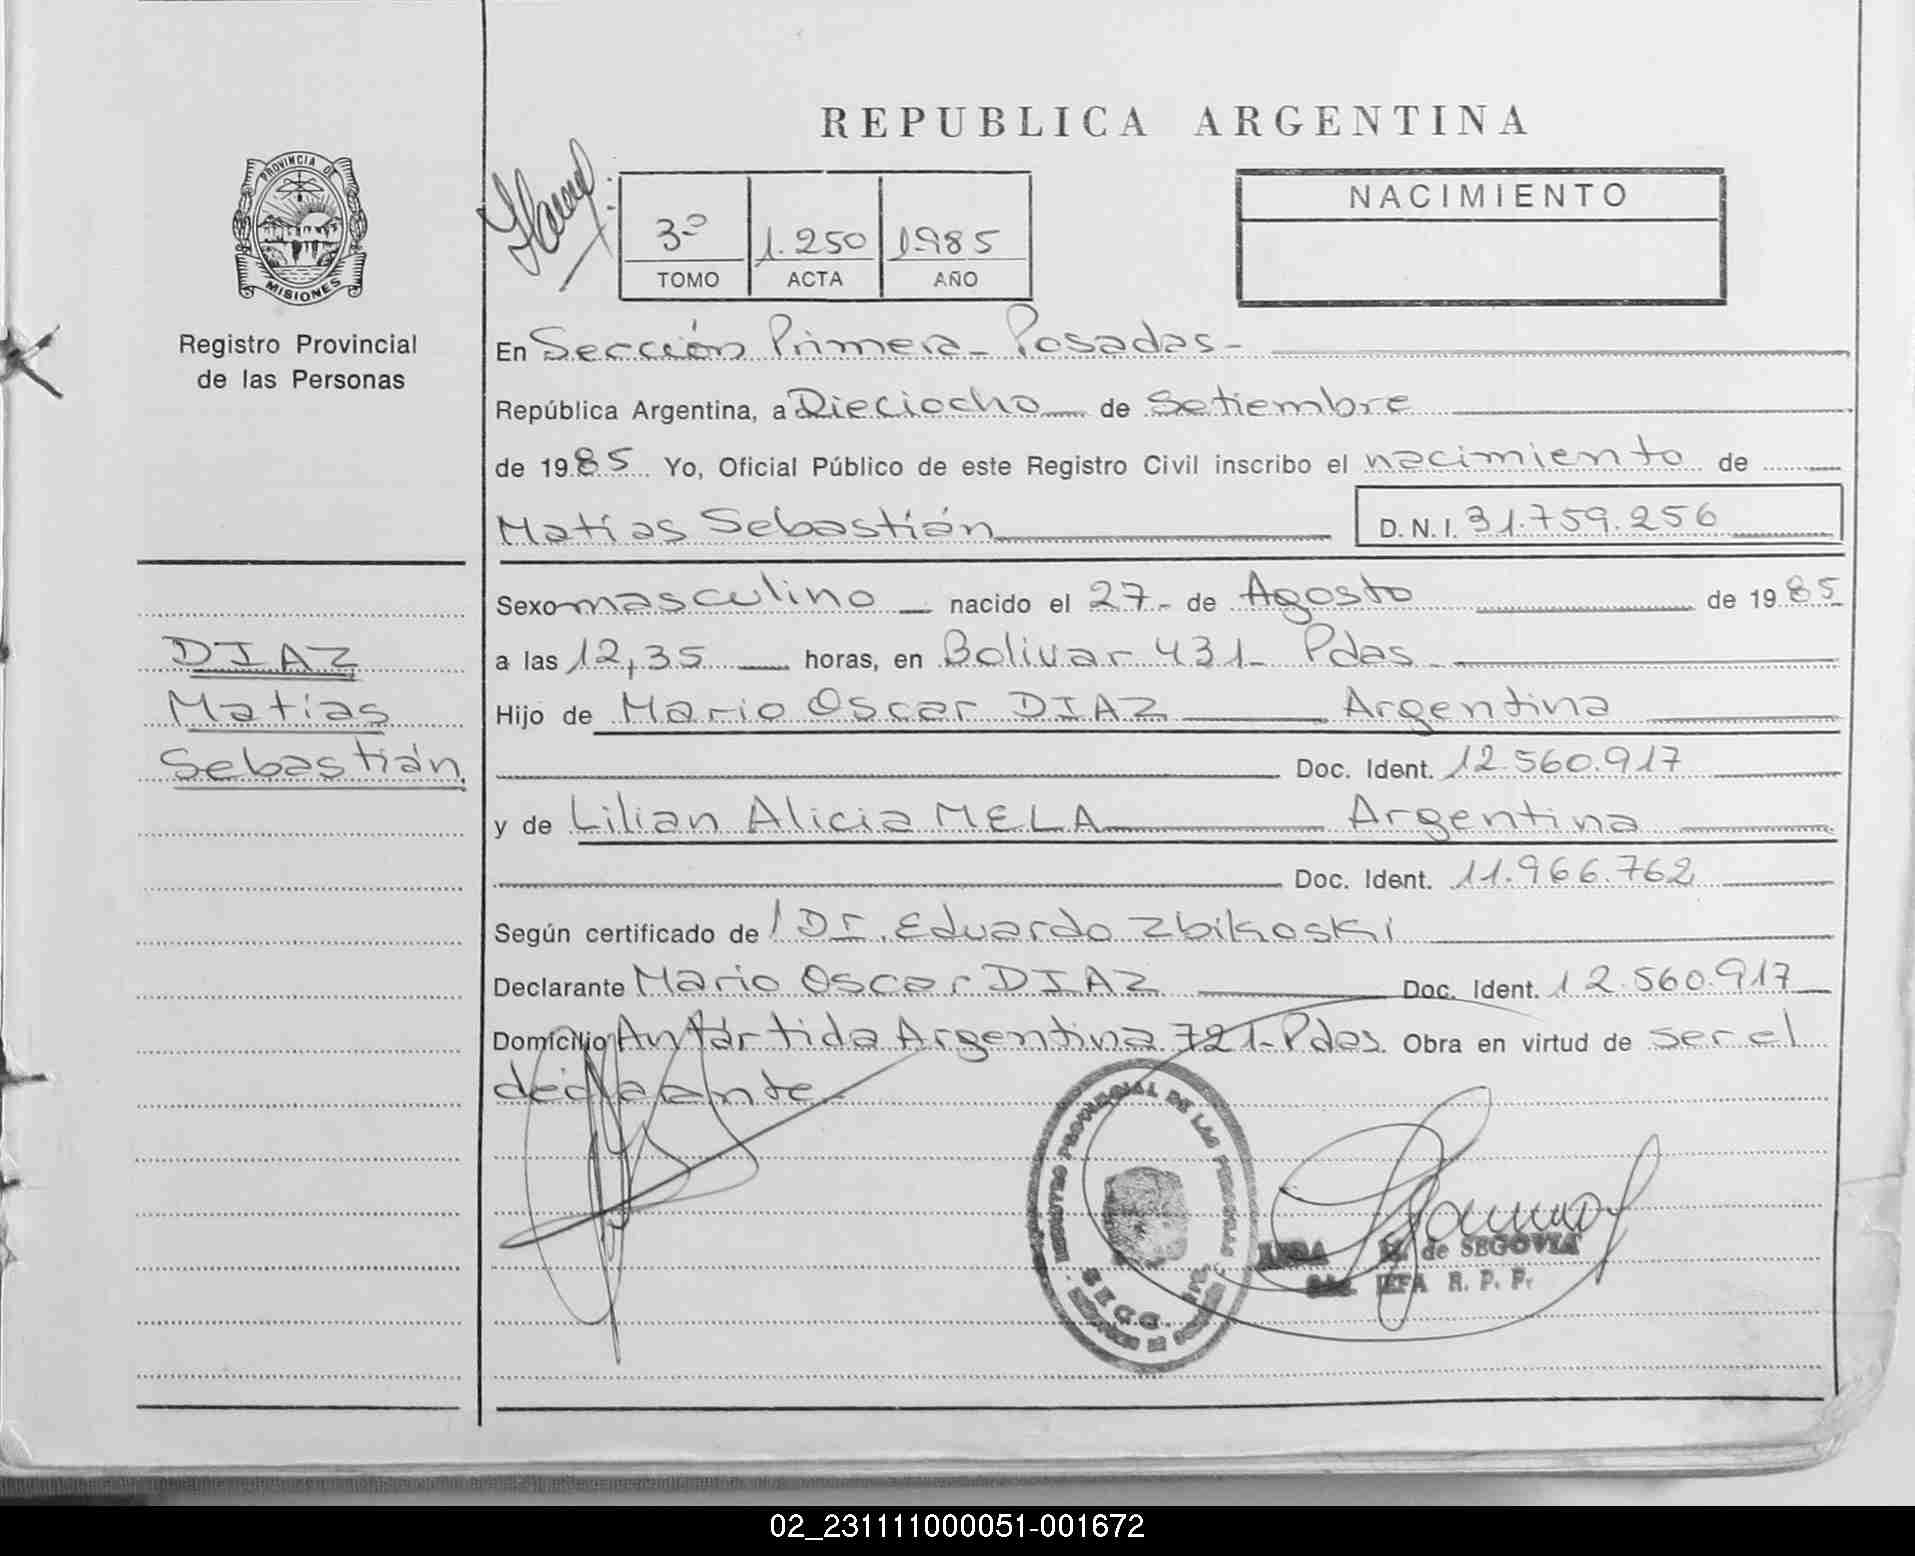 REPUBLICA ARGENTINA
PROVINCIA DE
MISIONES
Registro Provincial
de las Personas
3º 1.250 1985
TOMO ACTA AÑO
NACIMIENTO
En Sección Primera - Posadas -
República Argentina, a Dieciocho de Setiembre
de 1985 Yo, Oficial Público de este Registro Civil inscribo el nacimiento de
Matías Sebastián D.N.I. 31.759.256
DIAZ
Matías
Sebastián
Sexo masculino nacido el 27- de Agosto de 1985
a las 12,35 horas, en Bolivar 431- Pdas.
Hijo de Mario Oscar DIAZ Argentina
Doc. Ident. 12.560.917
y de Lilian Alicia MELA Argentina
Doc. Ident. 11.966.762
Según certificado de Dr. Eduardo Zbikoski
Declarante Mario Oscar DIAZ Doc. Ident. 12.560.917
Domicilio Antártida Argentina 721- Pdas. Obra en virtud de ser el
declarante
REGISTRO PROVINCIAL DE LAS PERSONAS
SECC. 1ra.
M. de SEGOVIA
JEFA R. P. P.
02_231111000051-001672